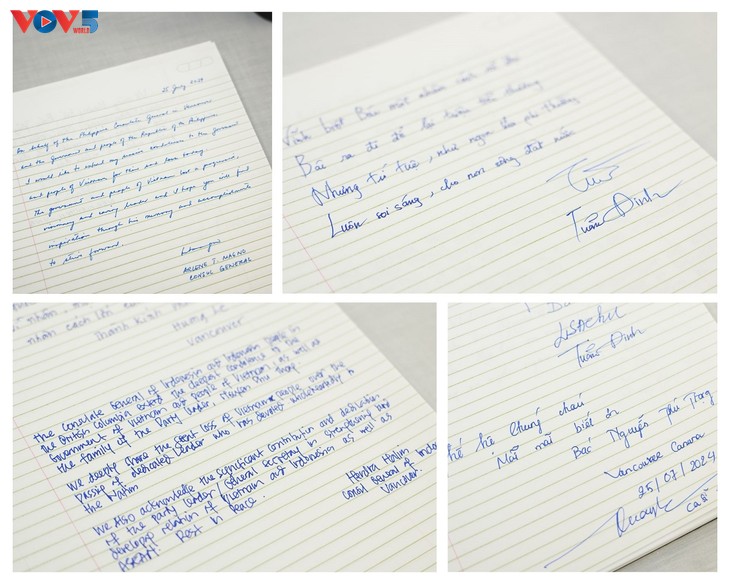 VOV5
WORLD
25 July 2024
On behalf of the Philippine Consulate General in Vancouver
and the Government and people of the Republic of the Philippines
I would like to extend my sincere condolences to the Government
and people of Vietnam for their
The government and people of Vietnam lost a
visionary and caring leader and I hope you will find
inspiration through his memory and accomplishments
to move forward.
ARLENE T. MAGNO
CONSUL GENERAL
Vĩnh biệt Bác một nhân cách
Bác ra đi để lại
Nhưng trí tuệ, như ngọn lửa phi thường
Luôn soi sáng, cho non sông đất nước
Tuấn Đinh
nhân cách lớn
Thanh Kinh
Hưng Le
Vancouver
The Consulate General of Indonesia and Indonesia people in
the British Columbia extend the deepest condolence to the
Government of Vietnam and people of Vietnam, as well as
the family of the Party leader, Nguyen Phu Trong
We deeply share the great loss of Vietnam people over the
passing of dedicated leader who has devoted wholeheartedly to
the Nation
We also acknowledge the significant contribution and dedication
of the party leader/General Secretary in strengthening and
develop relation of Vietnam and Indonesia as well as
ASEAN. Rest in Peace.
Hendra Halim
Consul General of Indo
Vancouver.
Tuấn Đinh
thế hệ chúng cháu
Mãi mãi biết ơn
Bác Nguyễn Phú Trọng
Vancouver Canada
25/07/2024